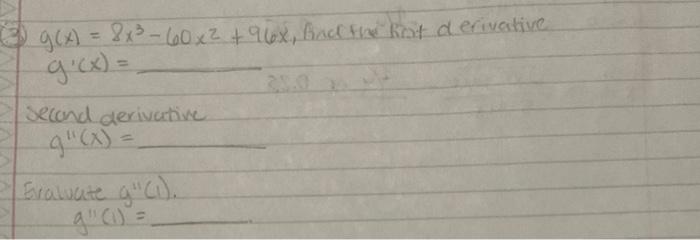 ③ g(x) = 8x³ - 60x² + 96x, find the first derivative
g'(x) = ________
second derivative
g''(x) = ________
Evaluate g''(1).
g''(1) = ________.